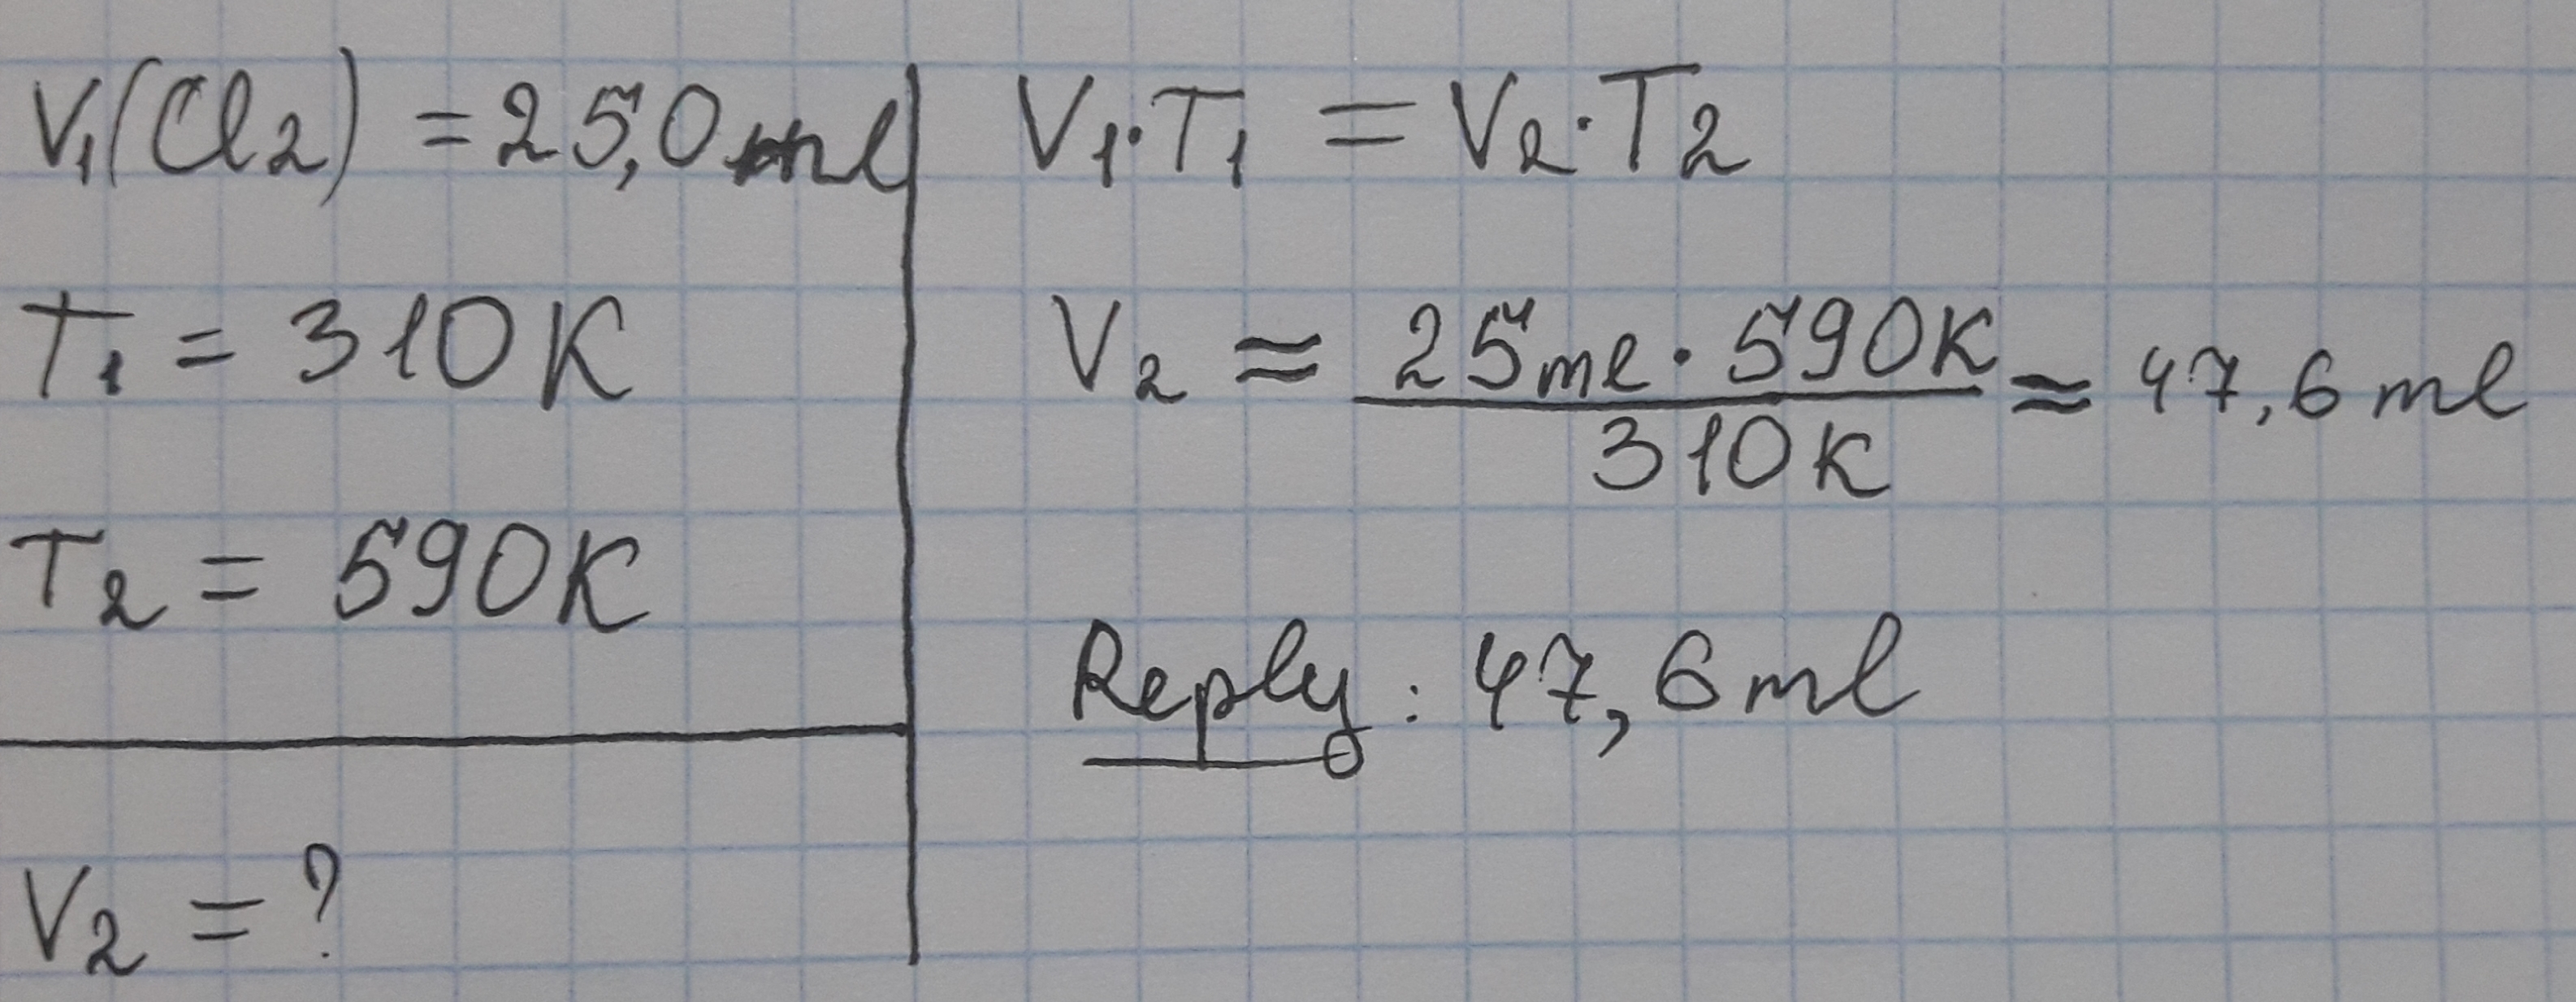 V₁(Cl₂) = 25,0 ml
T₁ = 310 K
T₂ = 590 K
V₂ = ?
V₁·T₁ = V₂·T₂
V₂ ≈ 25 ml · 590 K / 310 K ≈ 47,6 ml
Reply: 47,6 ml